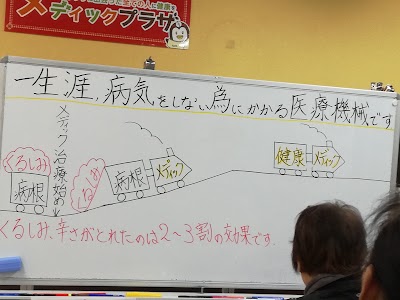 メディックプラザ
一生涯、病気をしない為にかかる医療機械です
メディック治療始め
くるしみ
病根
病根
メディック
健康
メディック
くるしみ、辛さがとれたのは2~3割の効果です。